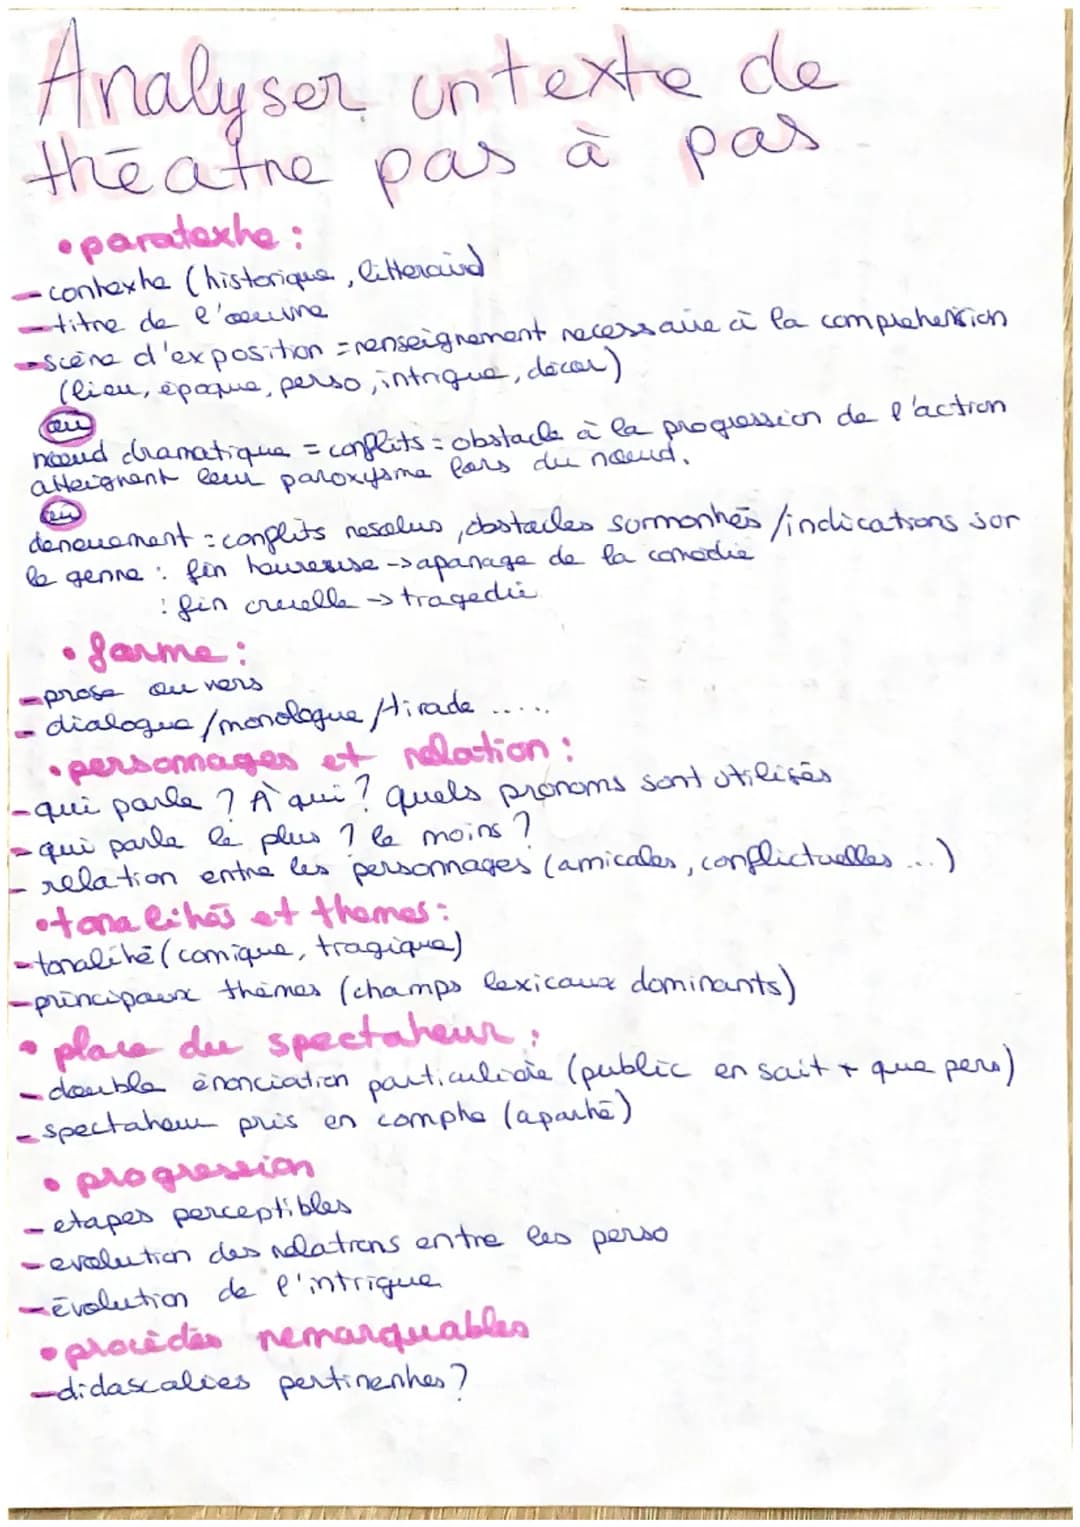 Analyser un texte de
théatre pas à pas
• paratexte :
- contexte (historique, litteraire)
- titre de l'oeuvre
- scène d'exposition = renseignement necessaire à la comprehension
(lieu, époque, perso, intrigue, décor)
ou
noeud dramatique = conflits = obstacle à la progression de l'action
atteignant leur paroxysme lors du noeud.
ou
denouement : conflits resolus, obstacles surmontés / indications sur
le genre : fin heureuse -> apanage de la comédie
: fin cruelle -> tragedie
• forme :
- prose ou vers
- dialogue / monologue / tirade .....
• personnages et relation :
- qui parle ? À qui ? quels pronoms sont utilisés
- qui parle le plus ? le moins ?
- relation entre les personnages (amicales, conflictuelles ...)
• tonalités et themes :
- tonalité (comique, tragique)
- principaux thèmes (champs lexicaux dominants)
• place du spectateur :
- double énonciation particulière (public en sait + que perso)
- spectateur pris en compte (aparté)
• progression
- etapes perceptibles
- evolution des relations entre les perso
- évolution de l'intrigue
• procédés remarquables
- didascalies pertinentes ?